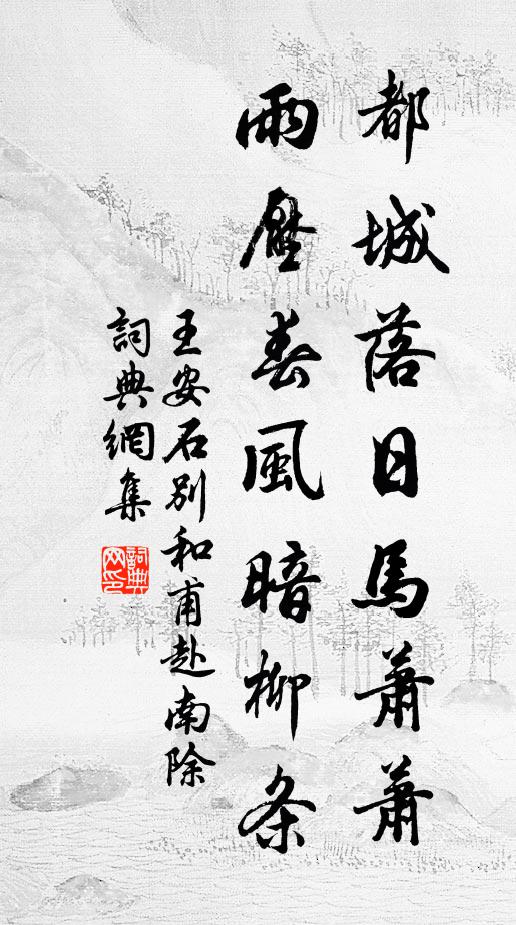 都城落日馬蕭蕭
雨壓春風暗柳条
王安石別和甫赴南除
詞典網集
詞典网印